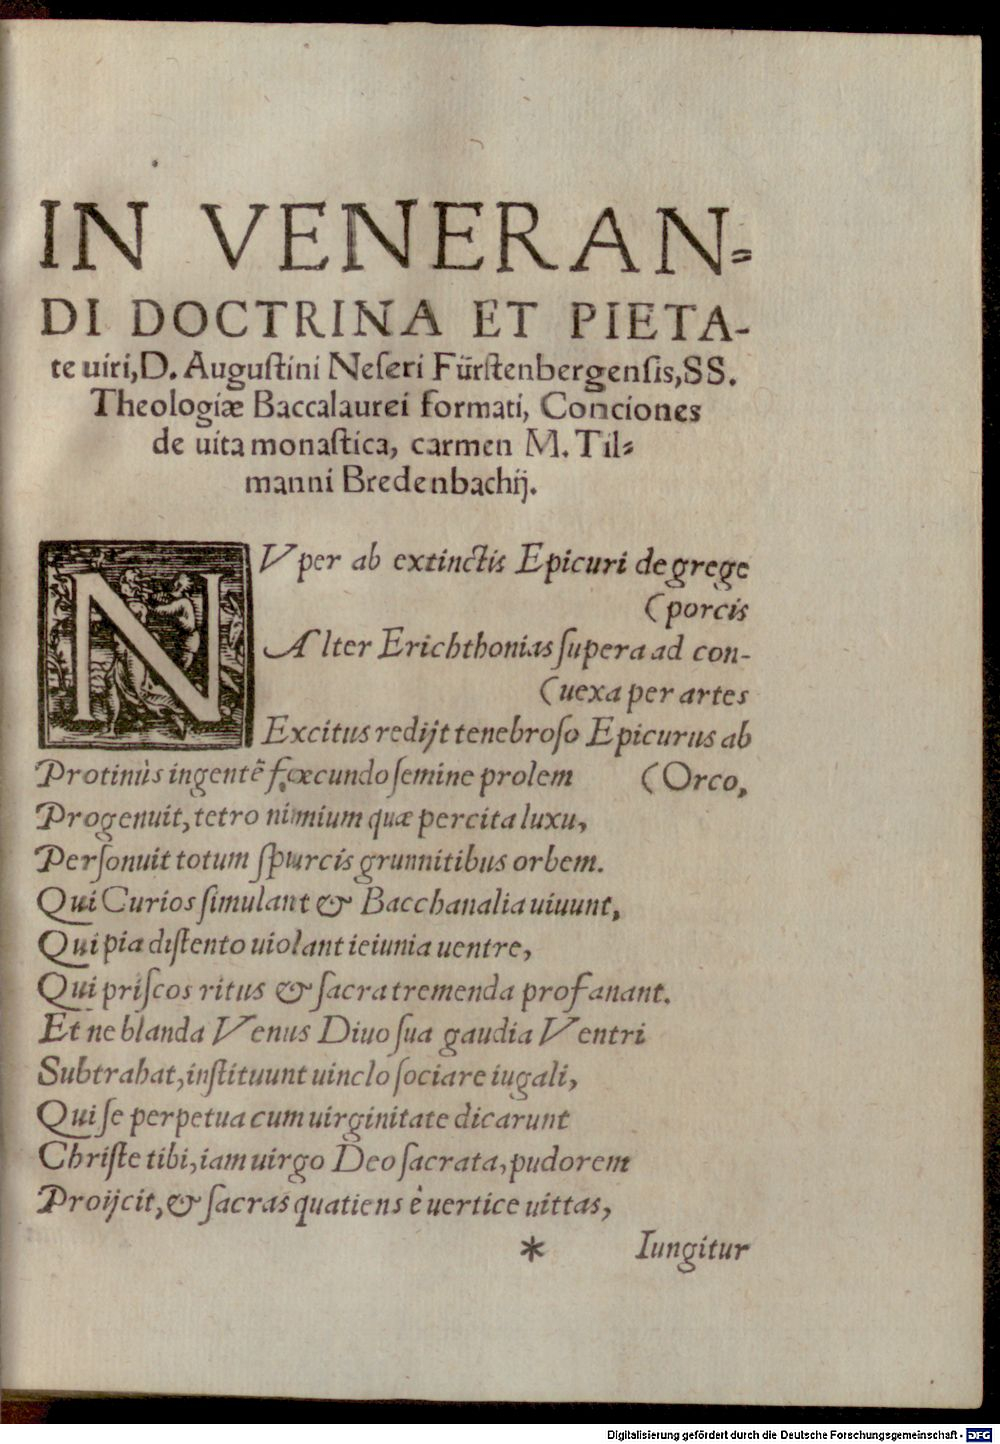 IN VENERAN=
DI DOCTRINA ET PIETA-
te uiri, D. Auguſtini Neſeri Fürſtenbergenſis, SS.
Theologiæ Baccalaurei formati, Conciones
de uita monaſtica, carmen M. Til=
manni Bredenbachij.
NVper ab extinctis Epicuri de grege
(porcis
Alter Erichthonias ſupera ad con-
(uexa per artes
Excitus redijt tenebroſo Epicurus ab
Protinùs ingentẽ fœcundo ſemine prolem (Orco,
Progenuit, tetro nimium quæ percita luxu,
Perſonuit totum ſpurcis grunnitibus orbem.
Qui Curios ſimulant & Bacchanalia uiuunt,
Qui pia diſtento uiolant ieiunia uentre,
Qui priſcos ritus & ſacra tremenda profanant.
Et ne blanda Venus Diuo ſua gaudia Ventri
Subtrahat, inſtituunt uinclo ſociare iugali,
Qui ſe perpetua cum uirginitate dicarunt
Chriſte tibi, iam uirgo Deo ſacrata, pudorem
Proijcit, & ſacras quatiens è uertice uittas,
* Iungitur
Digitalisierung gefördert durch die Deutsche Forschungsgemeinschaft - DFG